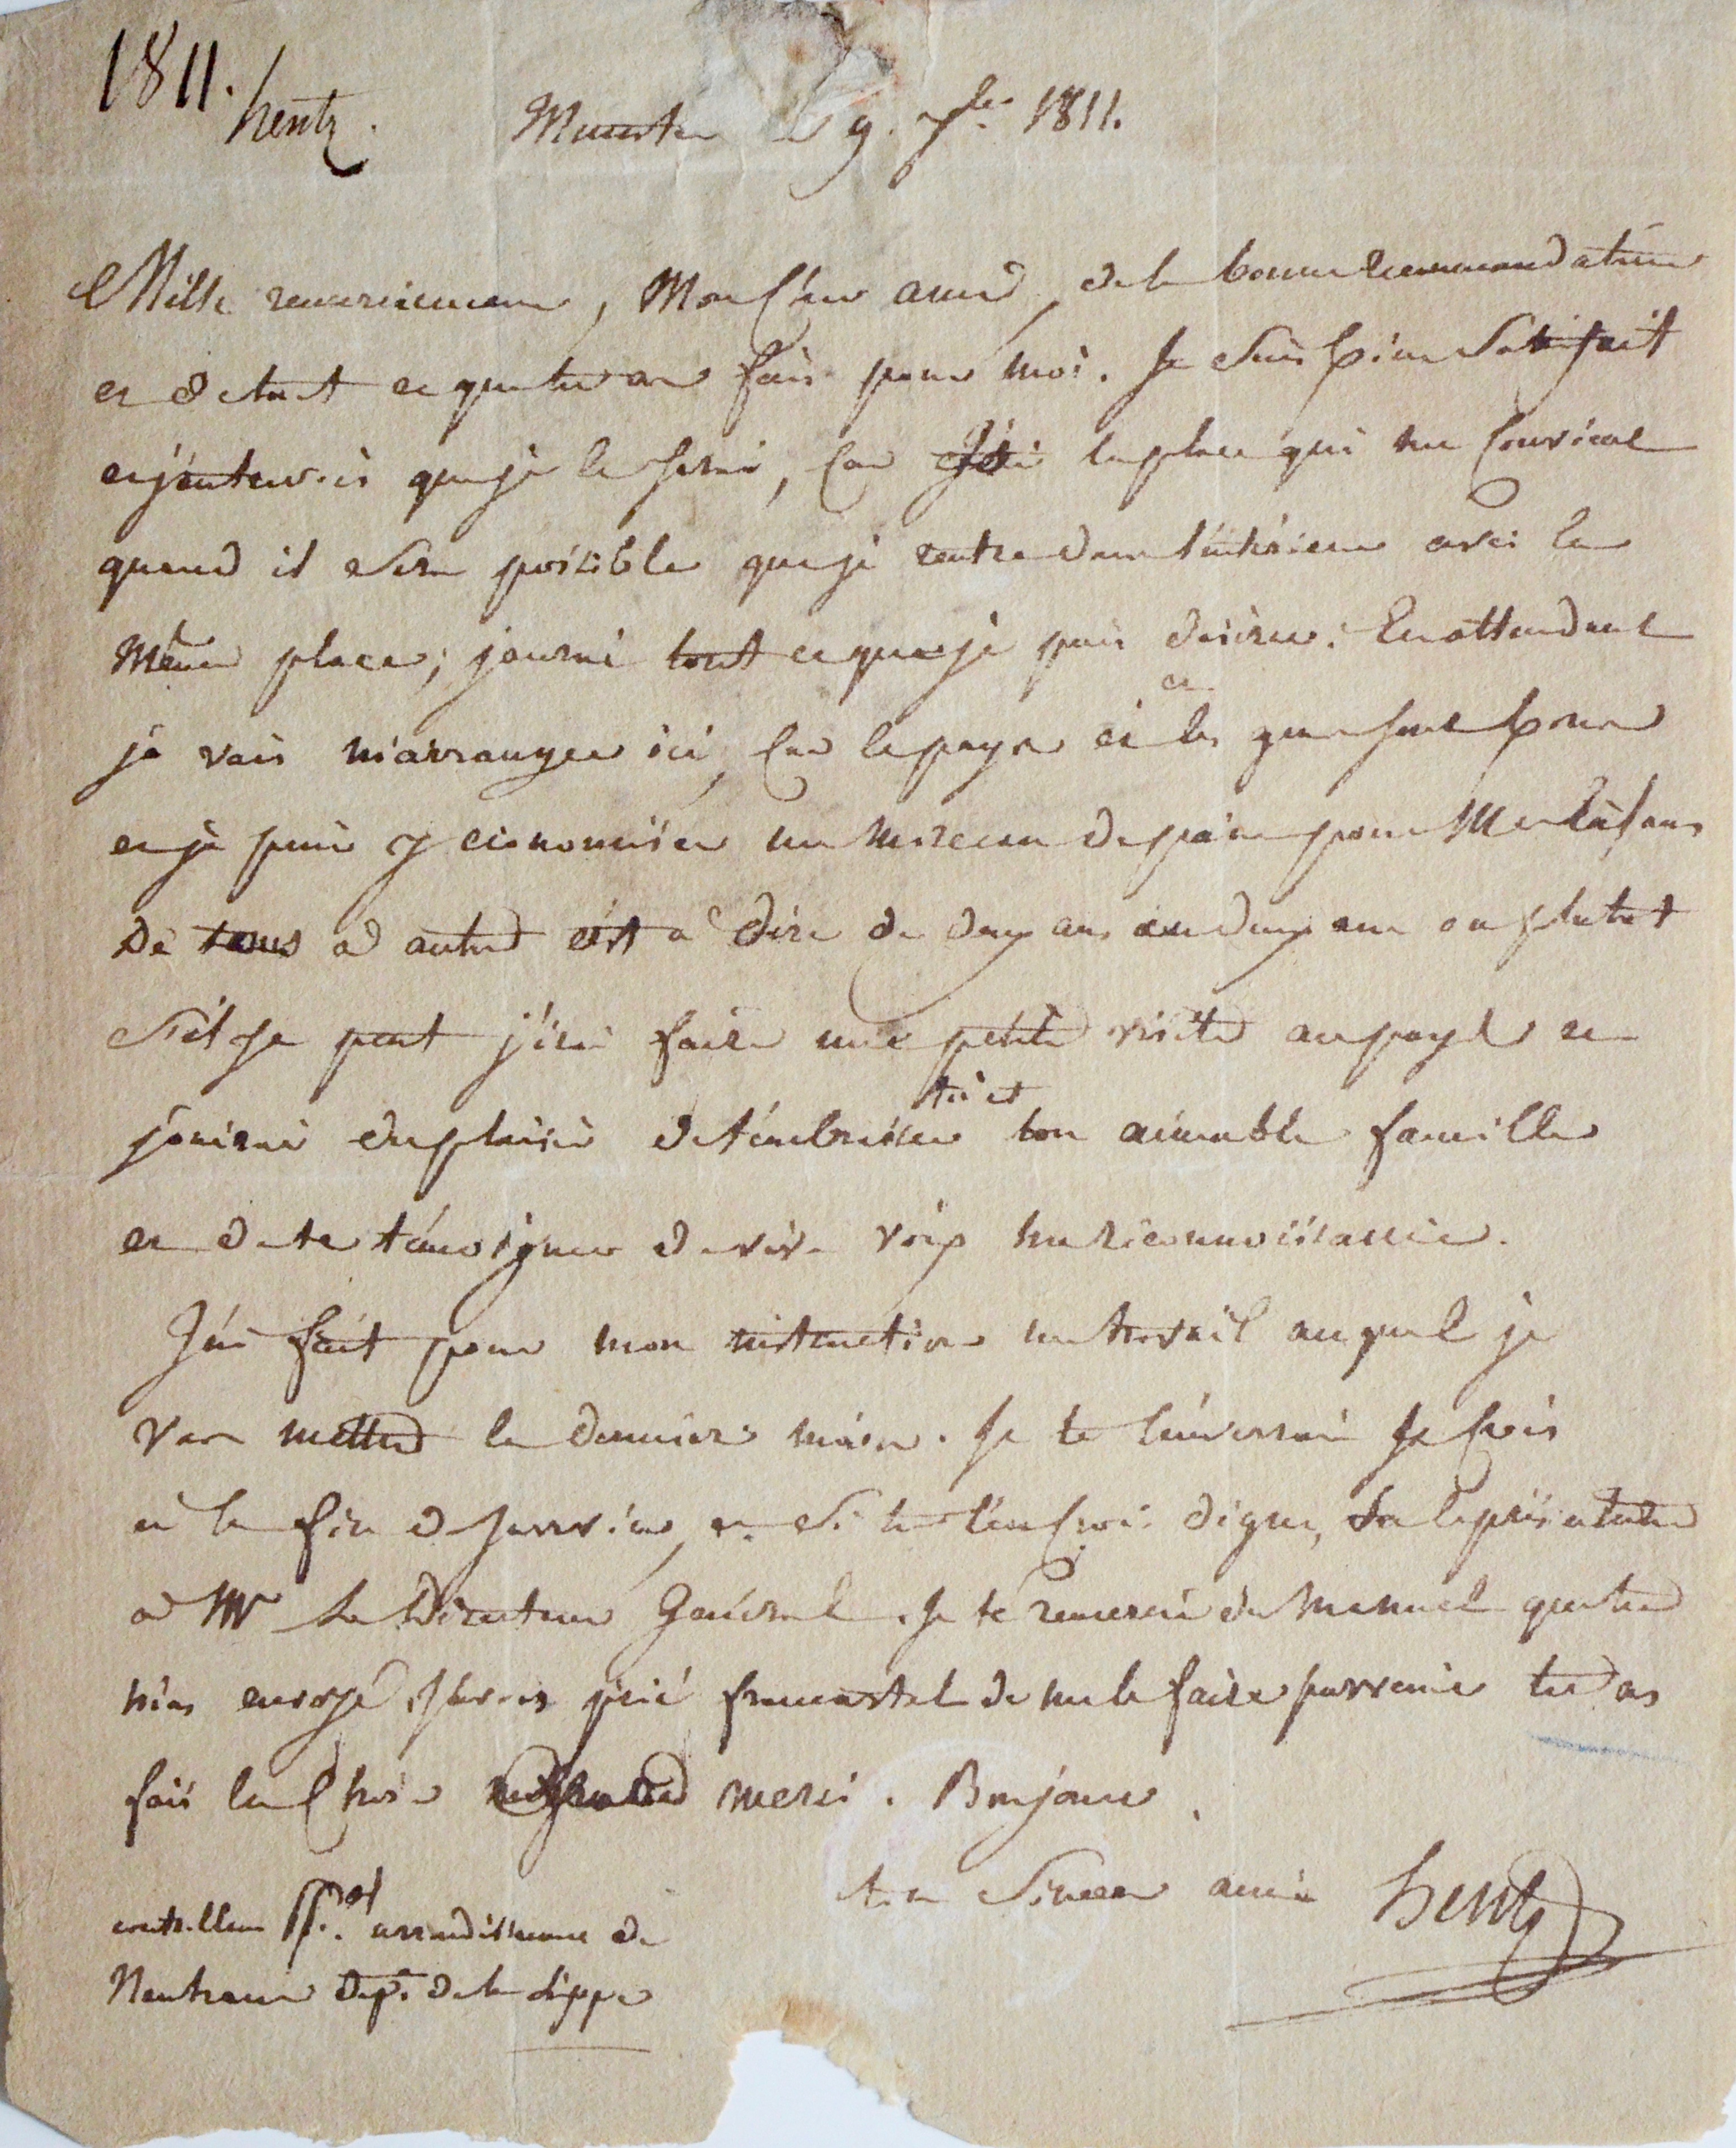 1811. hentz.
Munster le 9. 7bre 1811.
Mille remerciemens, Mon cher ami, de la bonne recommandation
et de tout ce que tu as fais pour moi. Je suis bien satisfait
et j'entrevois que je le serai, car j'ai la place qui me convient
quand il sera possible que je rentre dans l'intérieur avec la
même place, j'aurai tout ce que je puis désirer. En attendant
je vais m'arranger ici, car le pays et les gens sont bons
et je puis y économiser un morceau de pain pour Mes Enfans
De tems a autre c'est a dire de deux ans en deux ans ou plutot
s'il se peut j'irai faire une petite visite au pays et
jouirai du plaisir de t'embrasser toi et ton aimable famille
et de te témoigner de vive voix ma reconnoissance.
J'ai fait pour mon instruction un travail auquel je
vais mettre la derniere main. Je te l'enverrai je crois
à la fin de janvier, et si tu l'en crois digne, tu le présenteras
a Mr Le Directeur Général. Je te remercie du Manuel que tu
m'as envoyé. J'avois prié fromentel de me le faire parvenir tu as
fais la chose merci. Bonjour.
ton sincere ami Hentz
controlleur ppal arrondissement de
Neuhaus Dept. de la Lippe